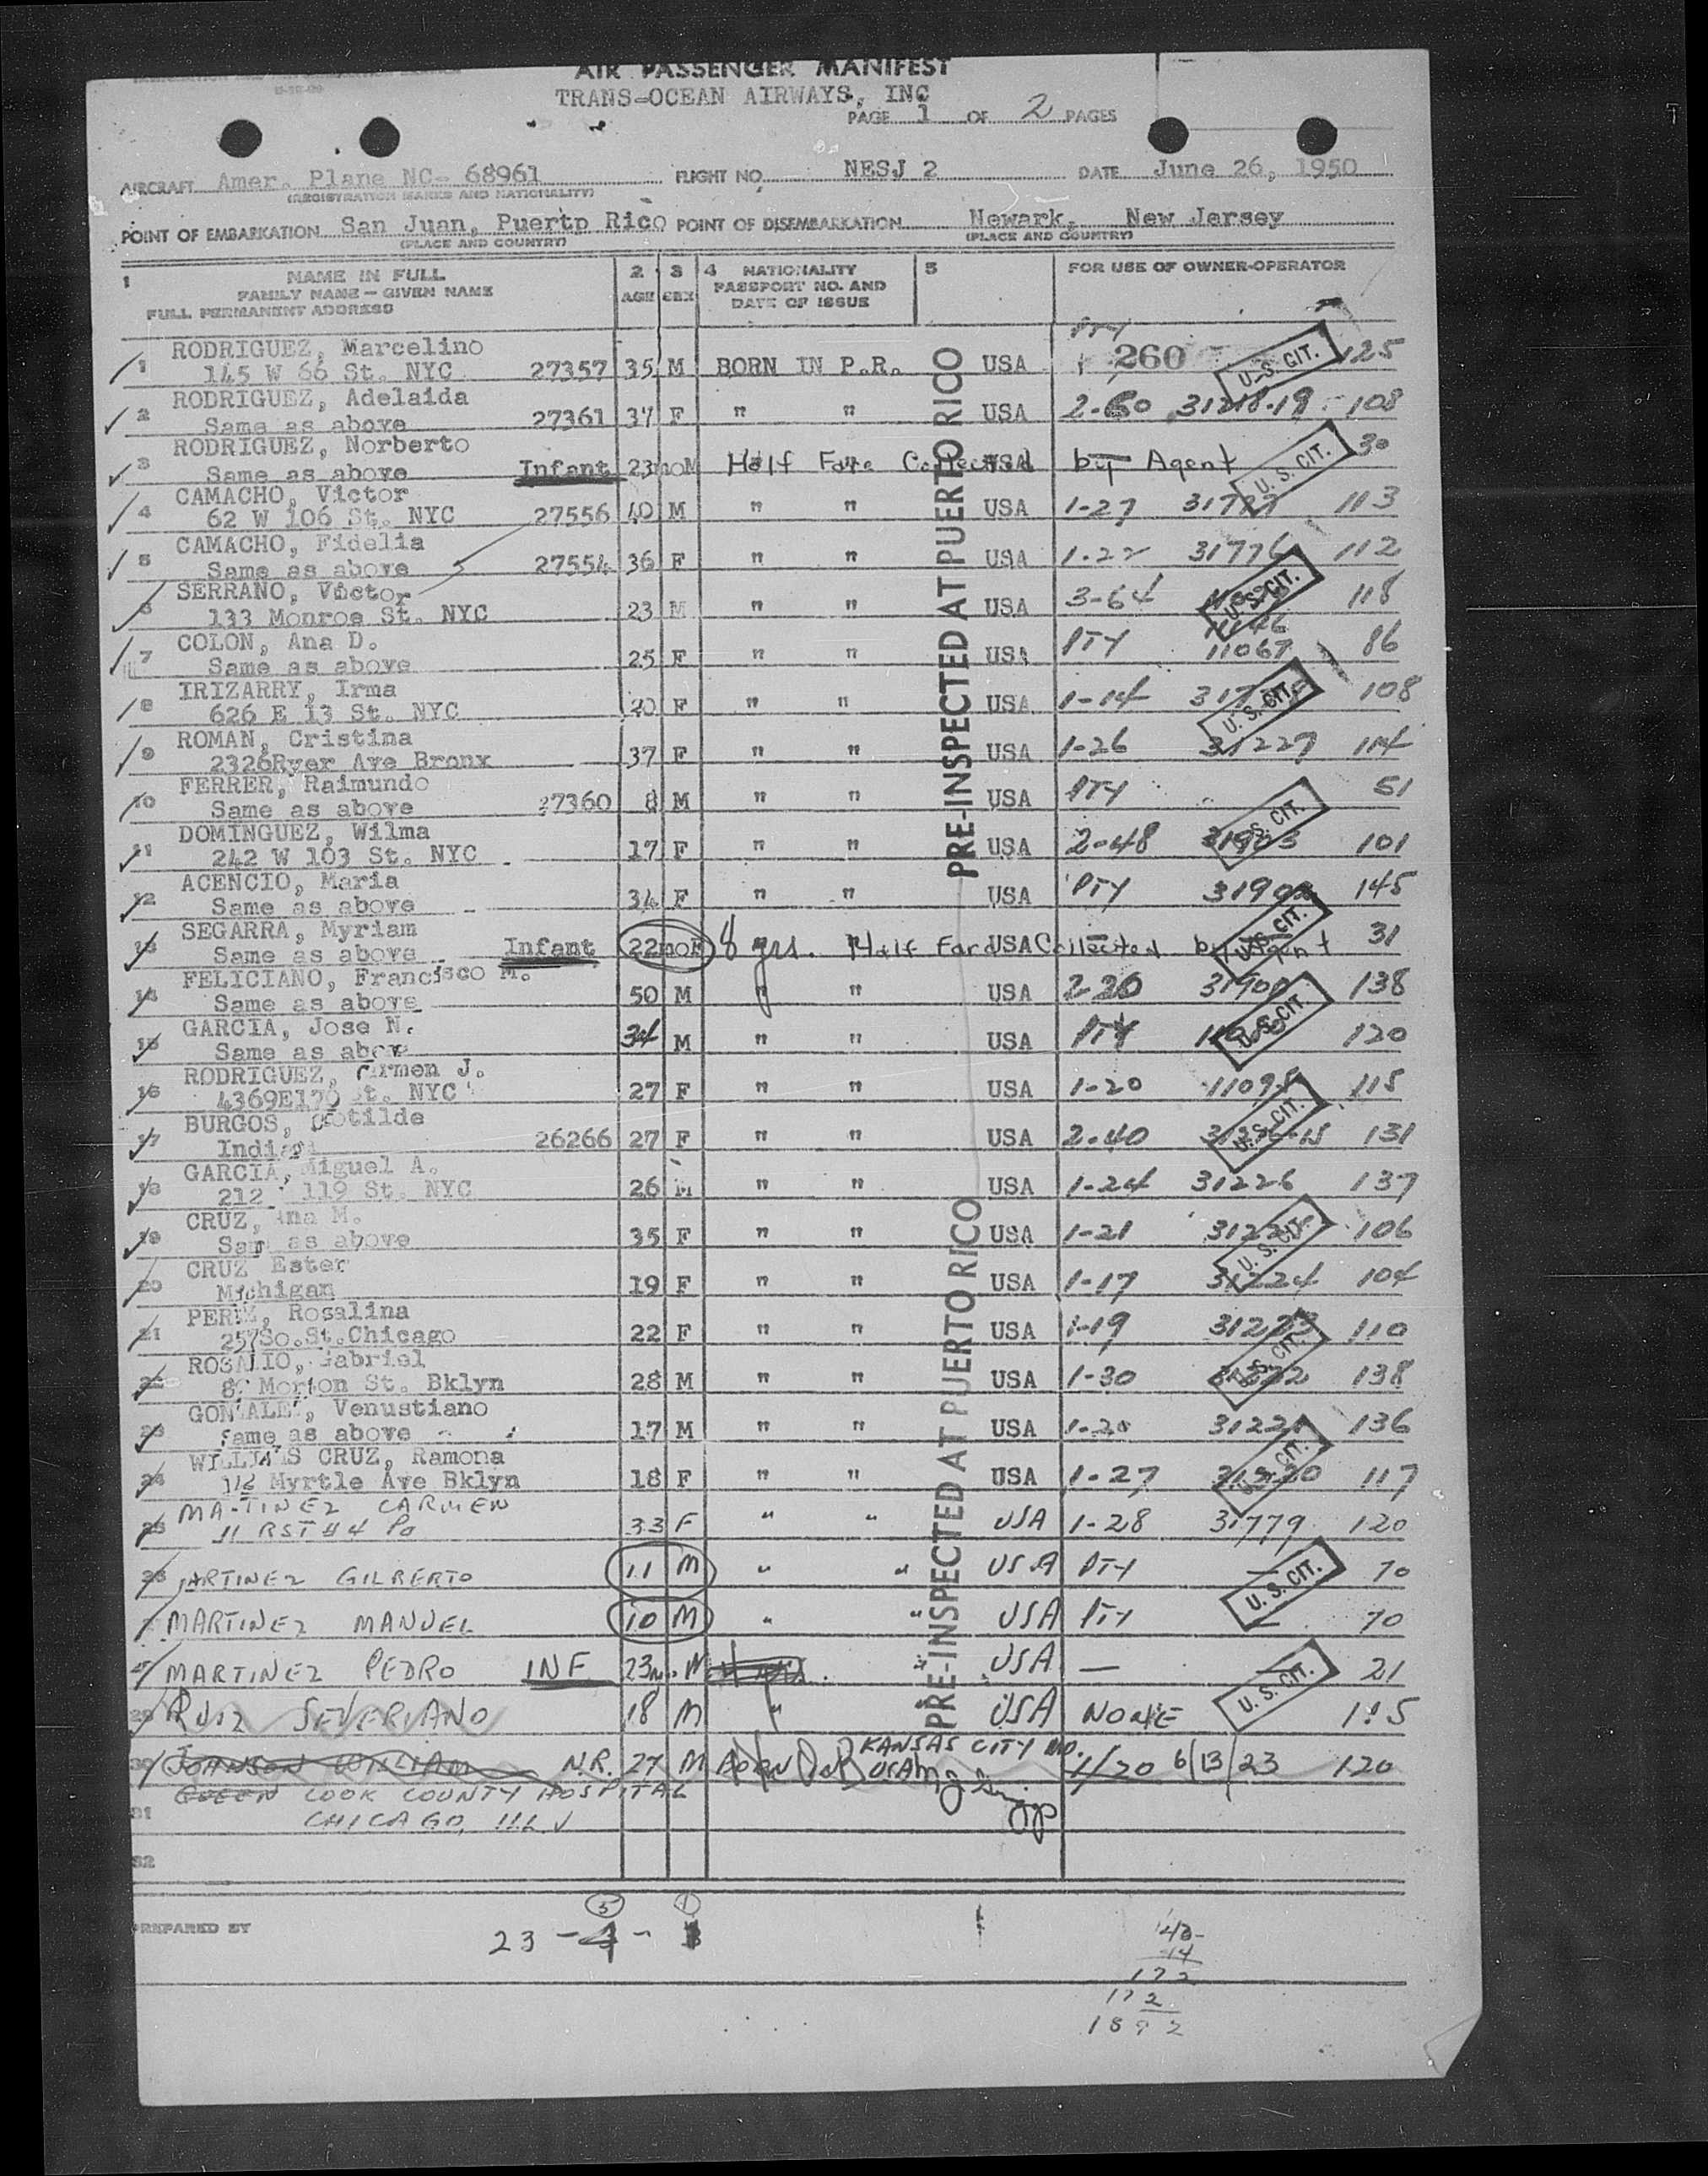 AIR PASSENGER MANIFEST
TRANS-OCEAN AIRWAYS, INC
PAGE 1 OF 2 PAGES
AIRCRAFT Amer. Plane NC- 68961 FLIGHT NO. NESJ 2 DATE June 26, 1950
(REGISTRATION MARKS AND NATIONALITY)
POINT OF EMBARKATION San Juan, Puertp Rico POINT OF DISEMBARKATION Newark, New Jersey
(PLACE AND COUNTRY) (PLACE AND COUNTRY)
1 NAME IN FULL 2 3 4 NATIONALITY 5 FOR USE OF OWNER-OPERATOR
FAMILY NAME — GIVEN NAME AGE SEX PASSPORT NO. AND
FULL PERMANENT ADDRESS DATE OF ISSUE
PTY
1 RODRIGUEZ, Marcelino
145 W 66 St. NYC 27357 35 M BORN IN P.R. USA 260 U.S. CIT. 125
2 RODRIGUEZ, Adelaida
Same as above 27361 37 F " " USA 2-60 31218-19 108
3 RODRIGUEZ, Norberto
Same as above Infant 23mo M Half Fare Collected USA by Agent U.S. CIT. 30
4 CAMACHO, Victor
62 W 106 St. NYC 27556 40 M " " USA 1-27 113
5 CAMACHO, Fidelia
Same as above 27554 36 F " " USA 1-22 31776 112
6 SERRANO, Victor
133 Monroe St. NYC 23 M " " USA 3-64 U.S. CIT. 118
7 COLON, Ana D.
Same as above 25 F " " USA PTY 11067 86
8 IRIZARRY, Irma
626 E 13 St. NYC 20 F " " USA 1-14 U.S. CIT. 108
9 ROMAN, Cristina
2326Ryer Ave Bronx 37 F " " USA 1-26 31227 114
10 FERRER, Raimundo
Same as above 27360 8 M " " USA PTY 51
11 DOMINGUEZ, Wilma
242 W 103 St. NYC 17 F " " USA 2-48 U.S. CIT. 101
12 ACENCIO, Maria
Same as above 34 F " " USA PTY 31902 145
13 SEGARRA, Myriam
Same as above Infant 22mo F 8 yrs. Half Fare USA Collected by Agent U.S. CIT. 31
14 FELICIANO, Francisco M.
Same as above 50 M " " USA 2-20 31900 138
15 GARCIA, Jose N.
Same as above 34 M " " USA PTY U.S. CIT. 120
16 RODRIGUEZ, Carmen J.
St. NYC 27 F " " USA 1-20 115
17 BURGOS, Clotilde
Indiana 26266 27 F " " USA 2-40 U.S. CIT. 131
18 GARCIA, Miguel A.
212 119 St. NYC 26 M " " USA 1-24 31226 137
19 CRUZ, Ana M.
Same as above 35 F " " USA 1-21 U.S. CIT. 106
20 CRUZ Ester
Michigan 19 F " " USA 1-17 31224 104
21 PEREZ, Rosalina
257So.St.Chicago 22 F " " USA 1-19 31223 110
22 ROSALIO, Gabriel
Morton St. Bklyn 28 M " " USA 1-30 U.S. CIT. 138
23 GONZALEZ, Venustiano
Same as above 17 M " " USA 1-20 31221 136
24 CRUZ, Ramona
116 Myrtle Ave Bklyn 18 F " " USA 1-27 U.S. CIT. 117
25 MARTINEZ CARMEN
33 F " " USA 1-28 31779 120
26 MARTINEZ GILBERTO 11 M " " USA PTY — 70
MARTINEZ MANUEL 10 M " " USA PTY — U.S. CIT. 70
MARTINEZ PEDRO INF 23mo M " USA — — 21
29 RUIZ SEVERIANO 18 M " " USA NONE U.S. CIT. 115
30 JOHNSON WILLIAM N.R. 27 M KANSAS CITY MO. 1/20 6/13/23 120
COOK COUNTY HOSPITAL
31 CHICAGO, ILL
32
PRE-INSPECTED AT PUERTO RICO
PRE-INSPECTED AT PUERTO RICO
PREPARED BY
23 -
14
172
172
1892